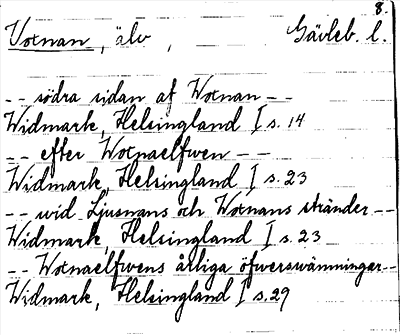 8.
Votnan, älv, Gävleb. l.
-- södra sidan af Wotnan --
Widmark, Helsingland I s. 14
-- efter Wotnaelfwen --
Widmark, Helsingland I s. 23
-- wid Ljusnans och Wotnans stränder --
Widmark, Helsingland I s. 23
-- Wotnaelfwens årliga öfverswämningar --
Widmark, Helsingland I s. 29